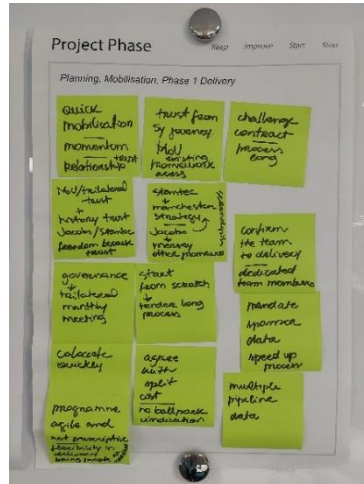 Project Phase
Keep Improve Start Stop
Planning, Mobilisation, Phase 1 Delivery
Quick
Mobilisation
momentum
trust
relationship
trust from
5y journey
MoU
existing
framework
access
challenge
contract
process
long
MoU/trilateral
trust
+
history trust
Jacobs/Stantec
freedom because
trust
Stantec
→ manchester
strategy
Jacobs
→ mersey
other framework
confirm
the team
to delivery
dedicated
team members
governance
→ trilateral
monthly
meeting
start
from scratch
→ tender long
process
mandate
sponsor
data
speed up
process
colocate
quickly
agree
with
split
cost
no ballpark
indication
multiple
pipeline
data
programme
agile and
not prescriptive
flexibility in
delivery
being